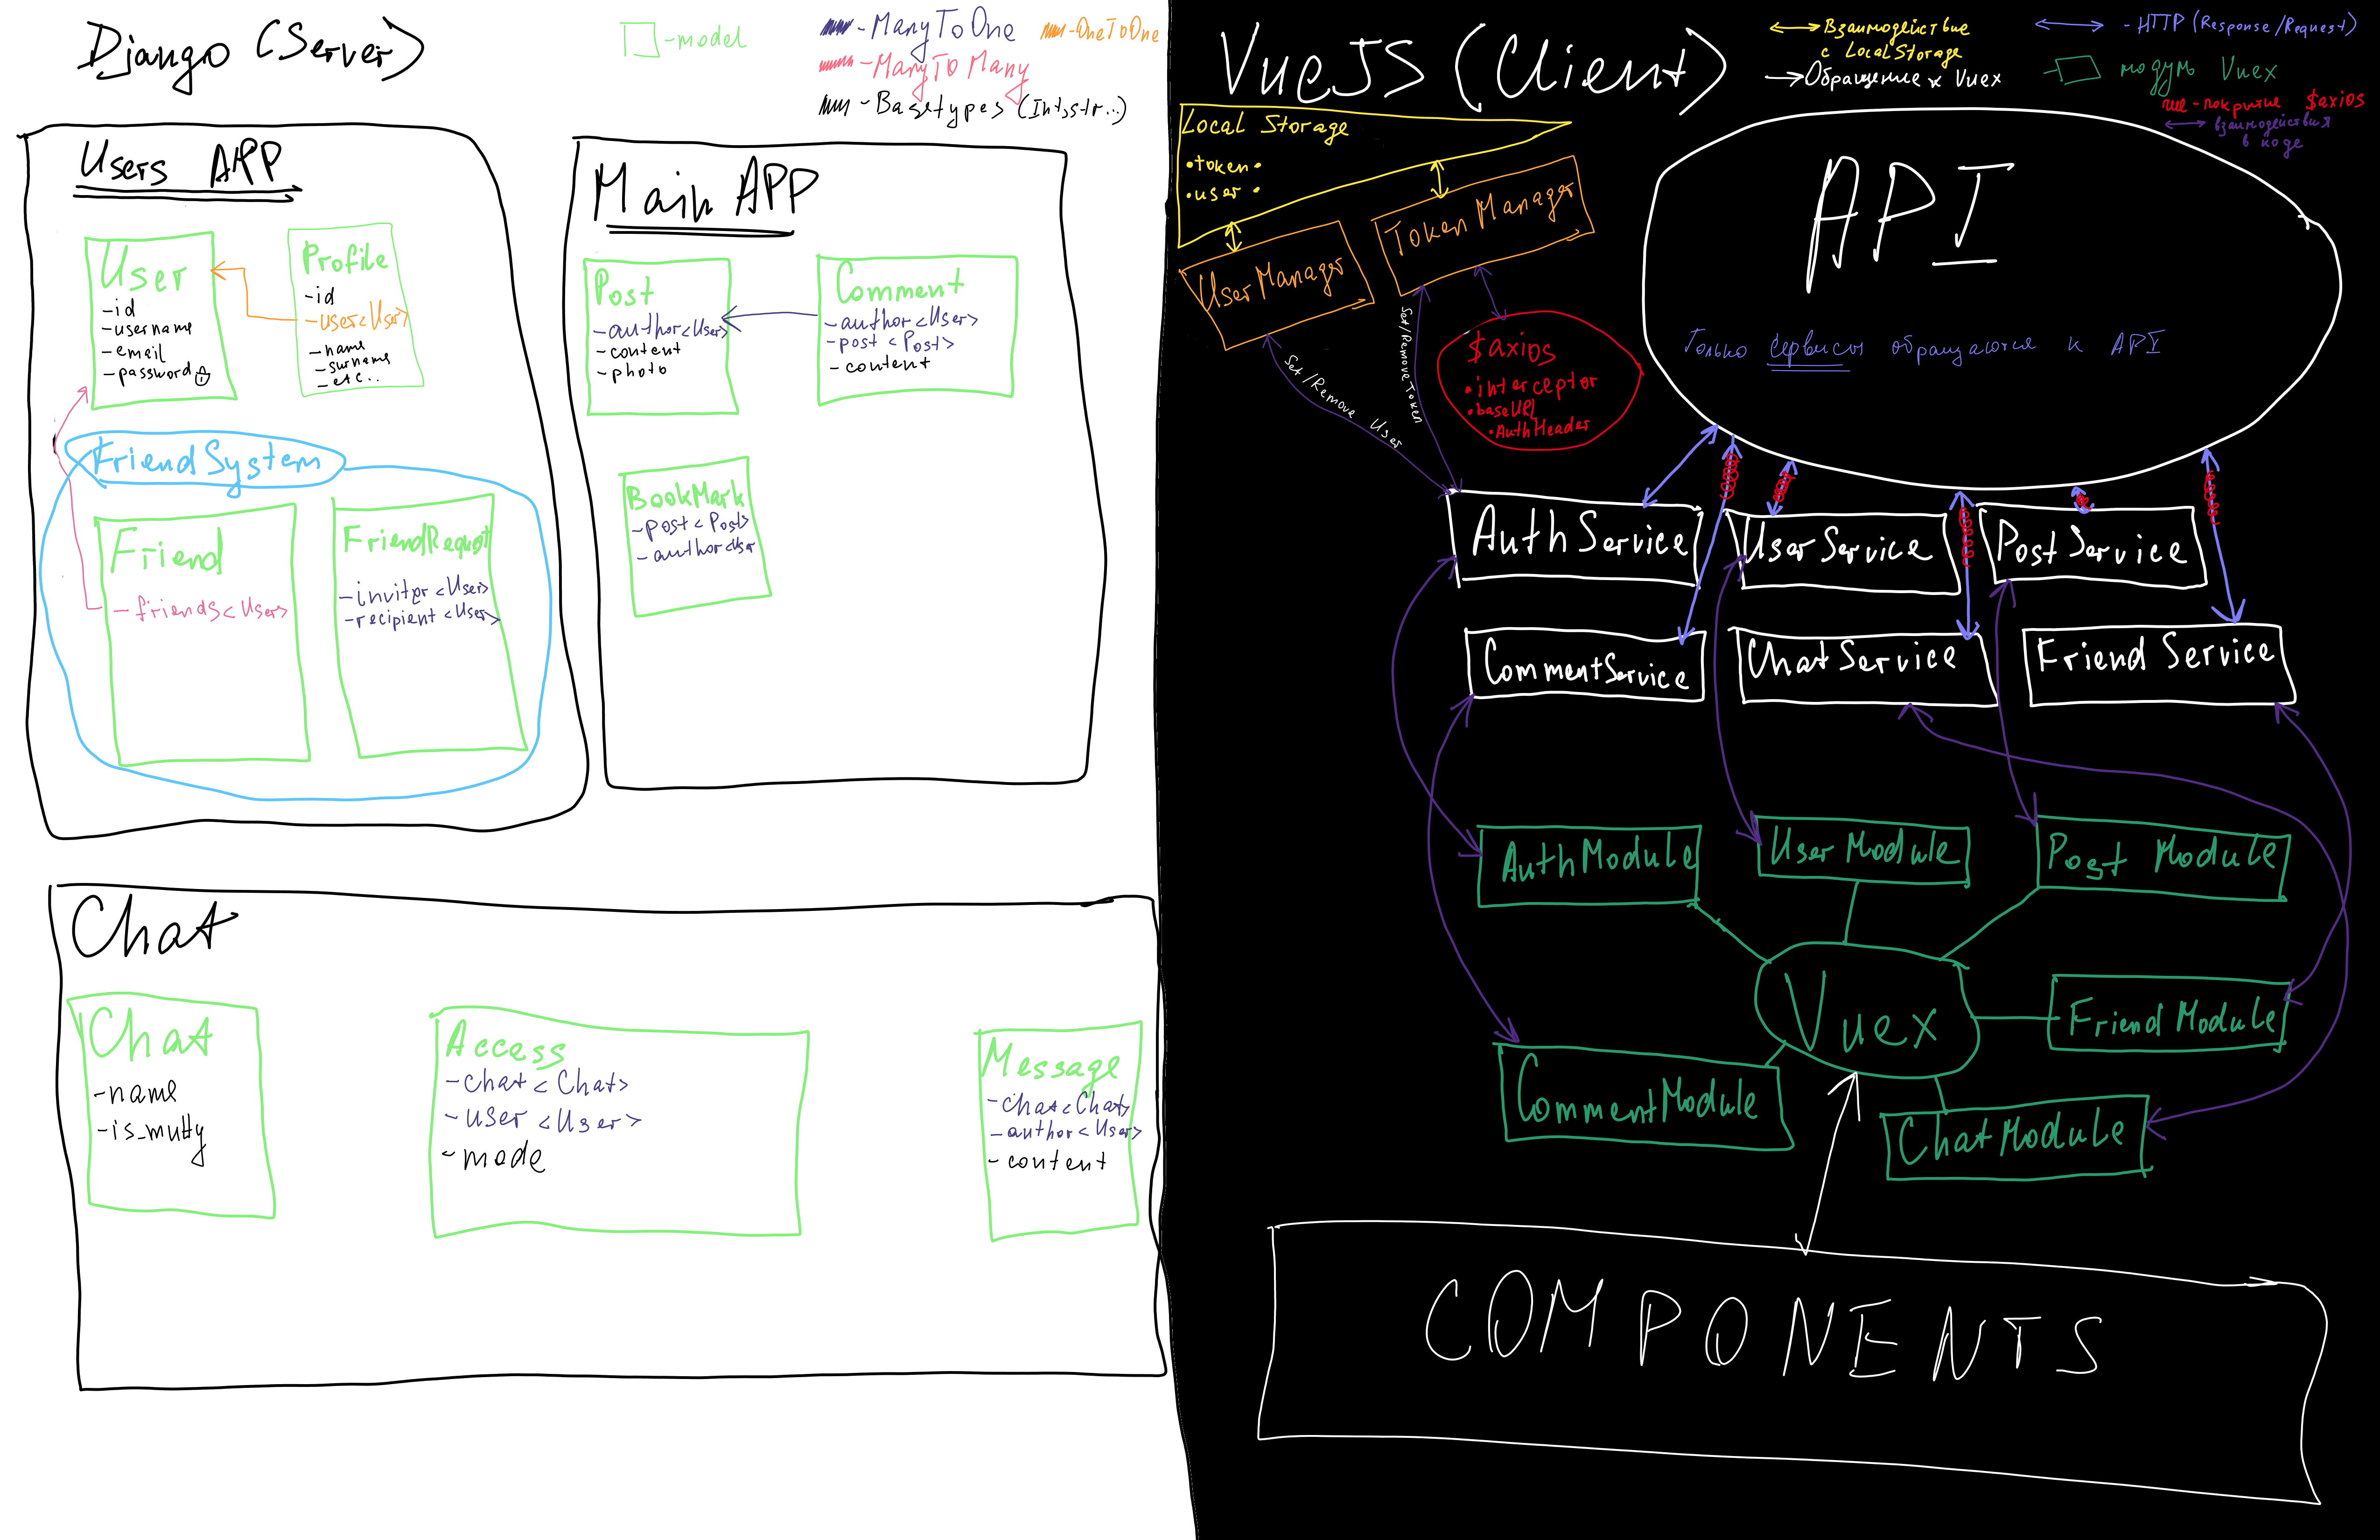 Django (Server)
-model
-ManyToOne
-OneToOne
-ManyToMany
-Basetypes (Int,str..)
Users APP
User
-id
-username
-email
-password
Profile
-id
-user<User>
-name
-surname
-etc..
FriendSystem
Friend
-friends<User>
FriendRequest
-invitor<User>
-recipient<User>
Main APP
Post
-author<User>
-content
-photo
Comment
-author<User>
-post <Post>
-content
BookMark
-post<Post>
-author<User
Chat
Chat
-name
Access
-chat<Chat>
-user<User>
-mode
Message
-chat<Chat>
-author<User>
-content
VueJS (Client)
Взаимодействие
с LocalStorage
Обращение к Vuex
-HTTP (Response/Request)
модуль Vuex
-покрытие $axios
взаимодействия
в коде
Local Storage
•token•
•user •
UserManager
Token Manager
Set/Remove User
Set/RemoveToken
$axios
•interceptor
•baseURL
•AuthHeader
API
Только сервисы обращаются к API
AuthService
UserService
PostService
CommentService
ChatService
Friend Service
AuthModule
UserModule
Post Module
Vuex
FriendModule
CommentModule
ChatModule
COMPONENTS